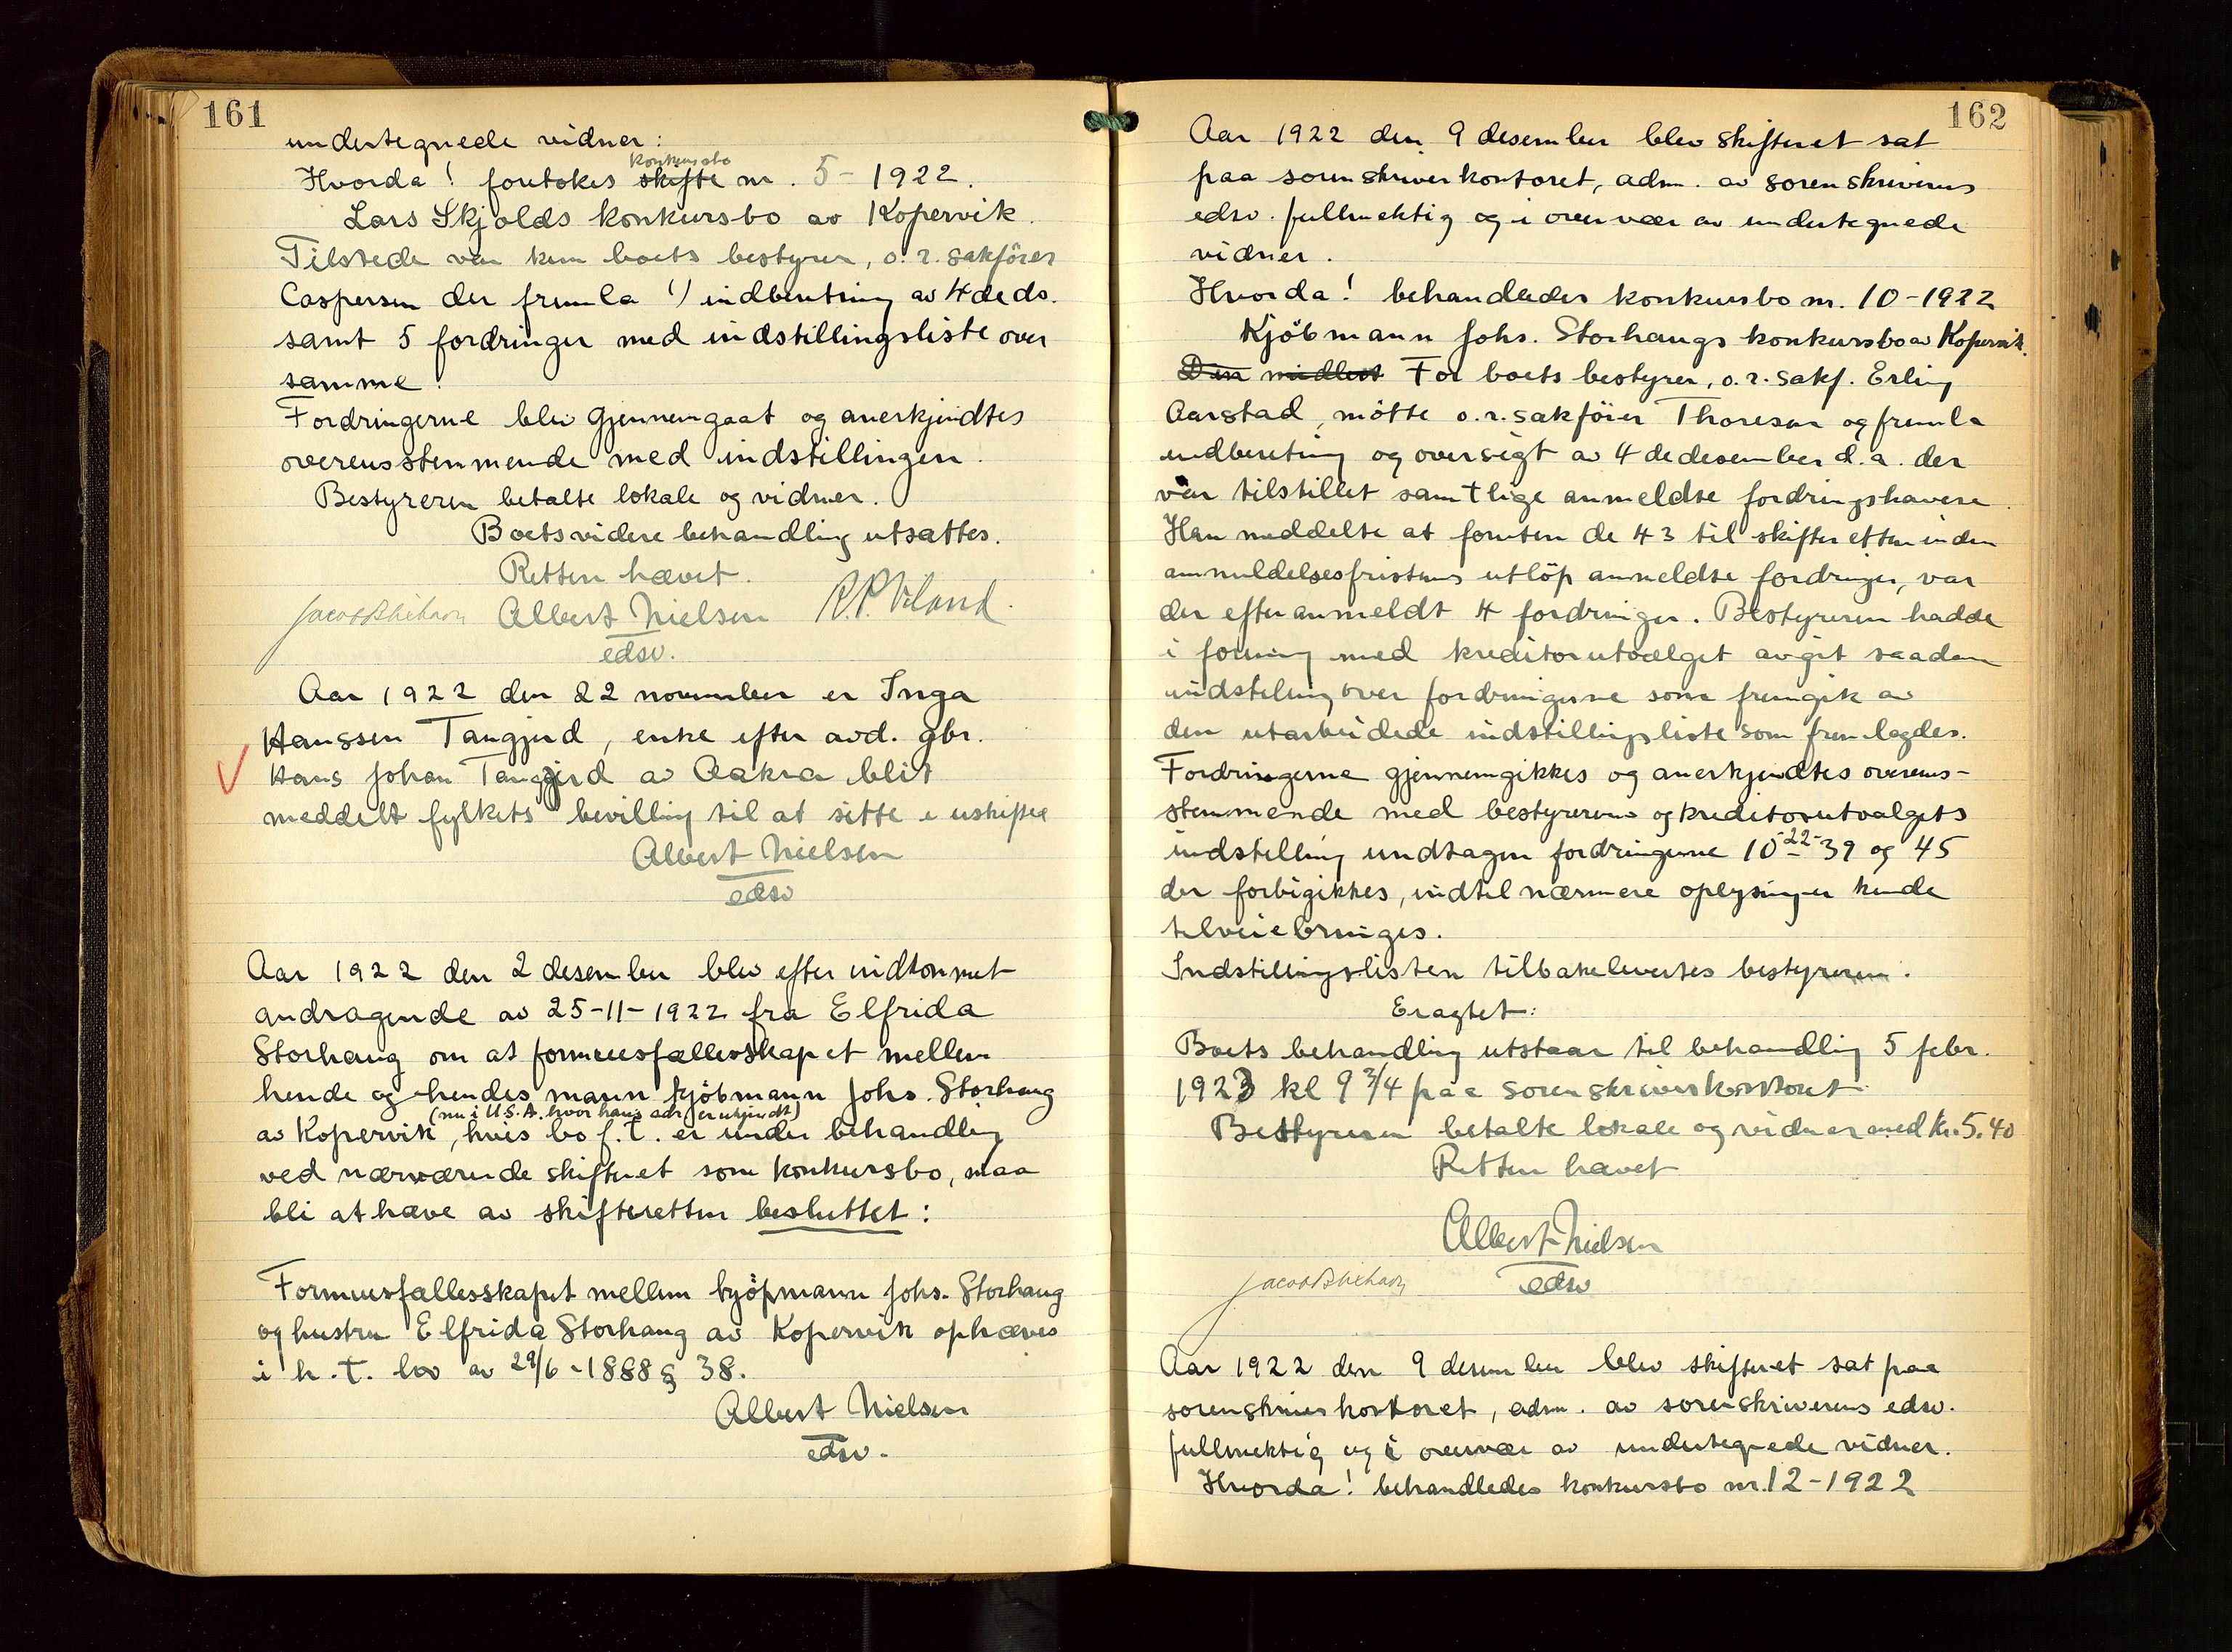 161
undertegnede vidner:
konkursbo
Hvorda! foretokes skifte nr. 5 - 1922.
Lars Skjolds konkursbo av Kopervik.
Tilstede var kun boets bestyrer, o.r. sakförer
Caspersen der fremla 1) indberetning av 4de ds.
samt 5 fordringer med indstillingsliste over
samme.
Fordringerne blev gjennemgaat og anerkjendtes
overensstemmende med indstillingen.
Bestyreren betalte lokale og vidner.
Boets videre behandling utsattes.
Retten hævet.
Albert Nielsen
edsv.
Aar 1922 den 22 november er Inga
Hanssen Tangjerd, enke efter avd. gbr.
Hans Johan Tangjerd av Aakra blit
meddelt fylkets bevilling til at sitte i uskiftea
Albert Nielsen
edsv
Aar 1922 den 2 desember blev efter indkommet
andragende av 25-11-1922 fra Elfrida
Storhaug om at formuesfællesskapet mellem
hende og hendes mann kjöbmann Johs. Storhaug
(nu i U.S.A. hvor hans adr. er ukjendt)
av Kopervik, hvis bo f.t. er under behandling
ved nærværende skifteret som konkursbo, maa
bli at hæve av skifteretten besluttet:
Formuesfællesskapet mellem kjöpmann Johs. Storhaug
og hustru Elfrida Storhaug av Kopervik ophæves
i h.t. lov av 29/6-1888 § 38.
Albert Nielsen
edsv.
162
Aar 1922 den 9 desember blev skifteret sat
paa sorenskriverkontoret, adm. av sorenskriverens
edsv. fullmektig og i overvær av undertegnede
vidner.
Hvorda! behandledes konkursbo nr. 10-1922
Kjöbmann Johs. Storhaugs konkursbo av Kopervik.
Den midlert For boets bestyrer, o.r. sakf. Erling
Aarstad, mötte o.r. sakförer Thoresen og fremla
indberetning og oversigt av 4de desember d.a. der
var tilstillet samtlige anmeldte fordringshavere.
Han meddelte at foruten de 43 til skifteretten inden
anmeldelsesfristens utlöp anmeldte fordringer, var
der efteranmeldt 4 fordringer. Bestyreren hadde
i forening med kreditorutvalget avgit saadan
indstilling over fordringerne som fremgik av
den utarbeidede indstillingsliste som fremlagdes.
Fordringerne gjennemgikkes og anerkjendtes overens-
stemmende med bestyrerens og kreditorutvalgets
indstilling undtagen fordringerne 10-22-39 og 45
der forbigikkes, indtil nærmere oplysninger kunde
tilveiebringes.
Indstillingslisten tilbakelevertes bestyreren.
Eragtet:
Boets behandling utstaar til behandling 5 febr.
1923 kl 9 3/4 paa sorenskriverkontoret.
Bestyreren betalte lokale og vidner med kr. 5.40
Retten hævet
Albert Nielsen
edsv
Aar 1922 den 9 desember blev skifteret sat paa
sorenskriverkontoret, adm. av sorenskriverens edsv.
fullmektig og i overvær av undertegnede vidner.
Hvorda! behandledes konkursbo nr. 12-1922